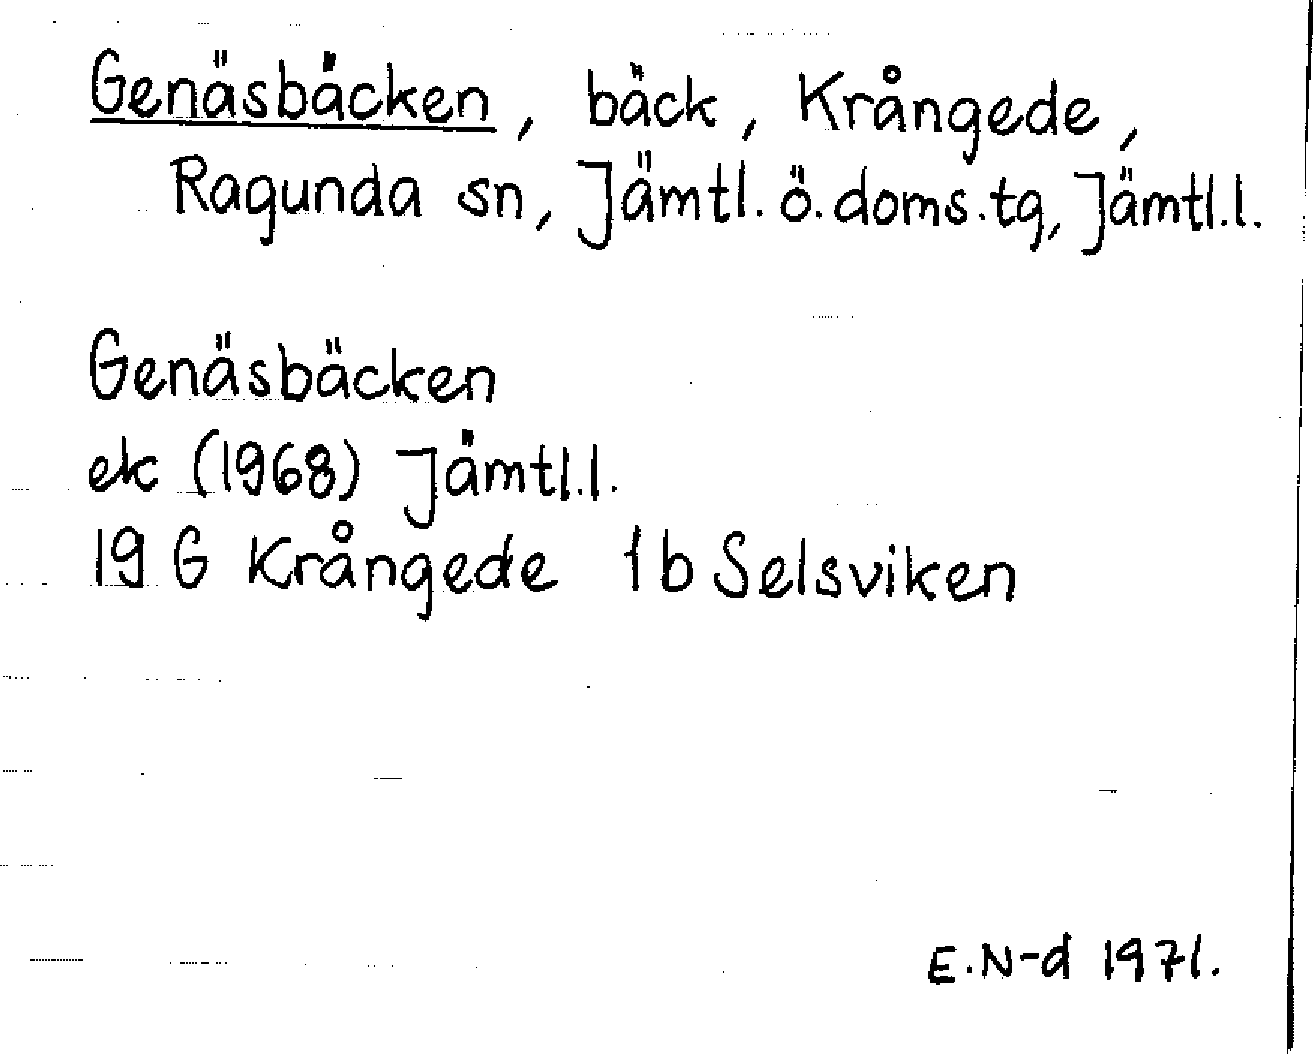 Genäsbäcken, bäck, Krångede,
Ragunda sn, Jämtl. ö. doms.tg, Jämtl.l.
Genäsbäcken
ek (1968) Jämtl.l.
19 G Krångede 1b Selsviken
E.N-d 1971.